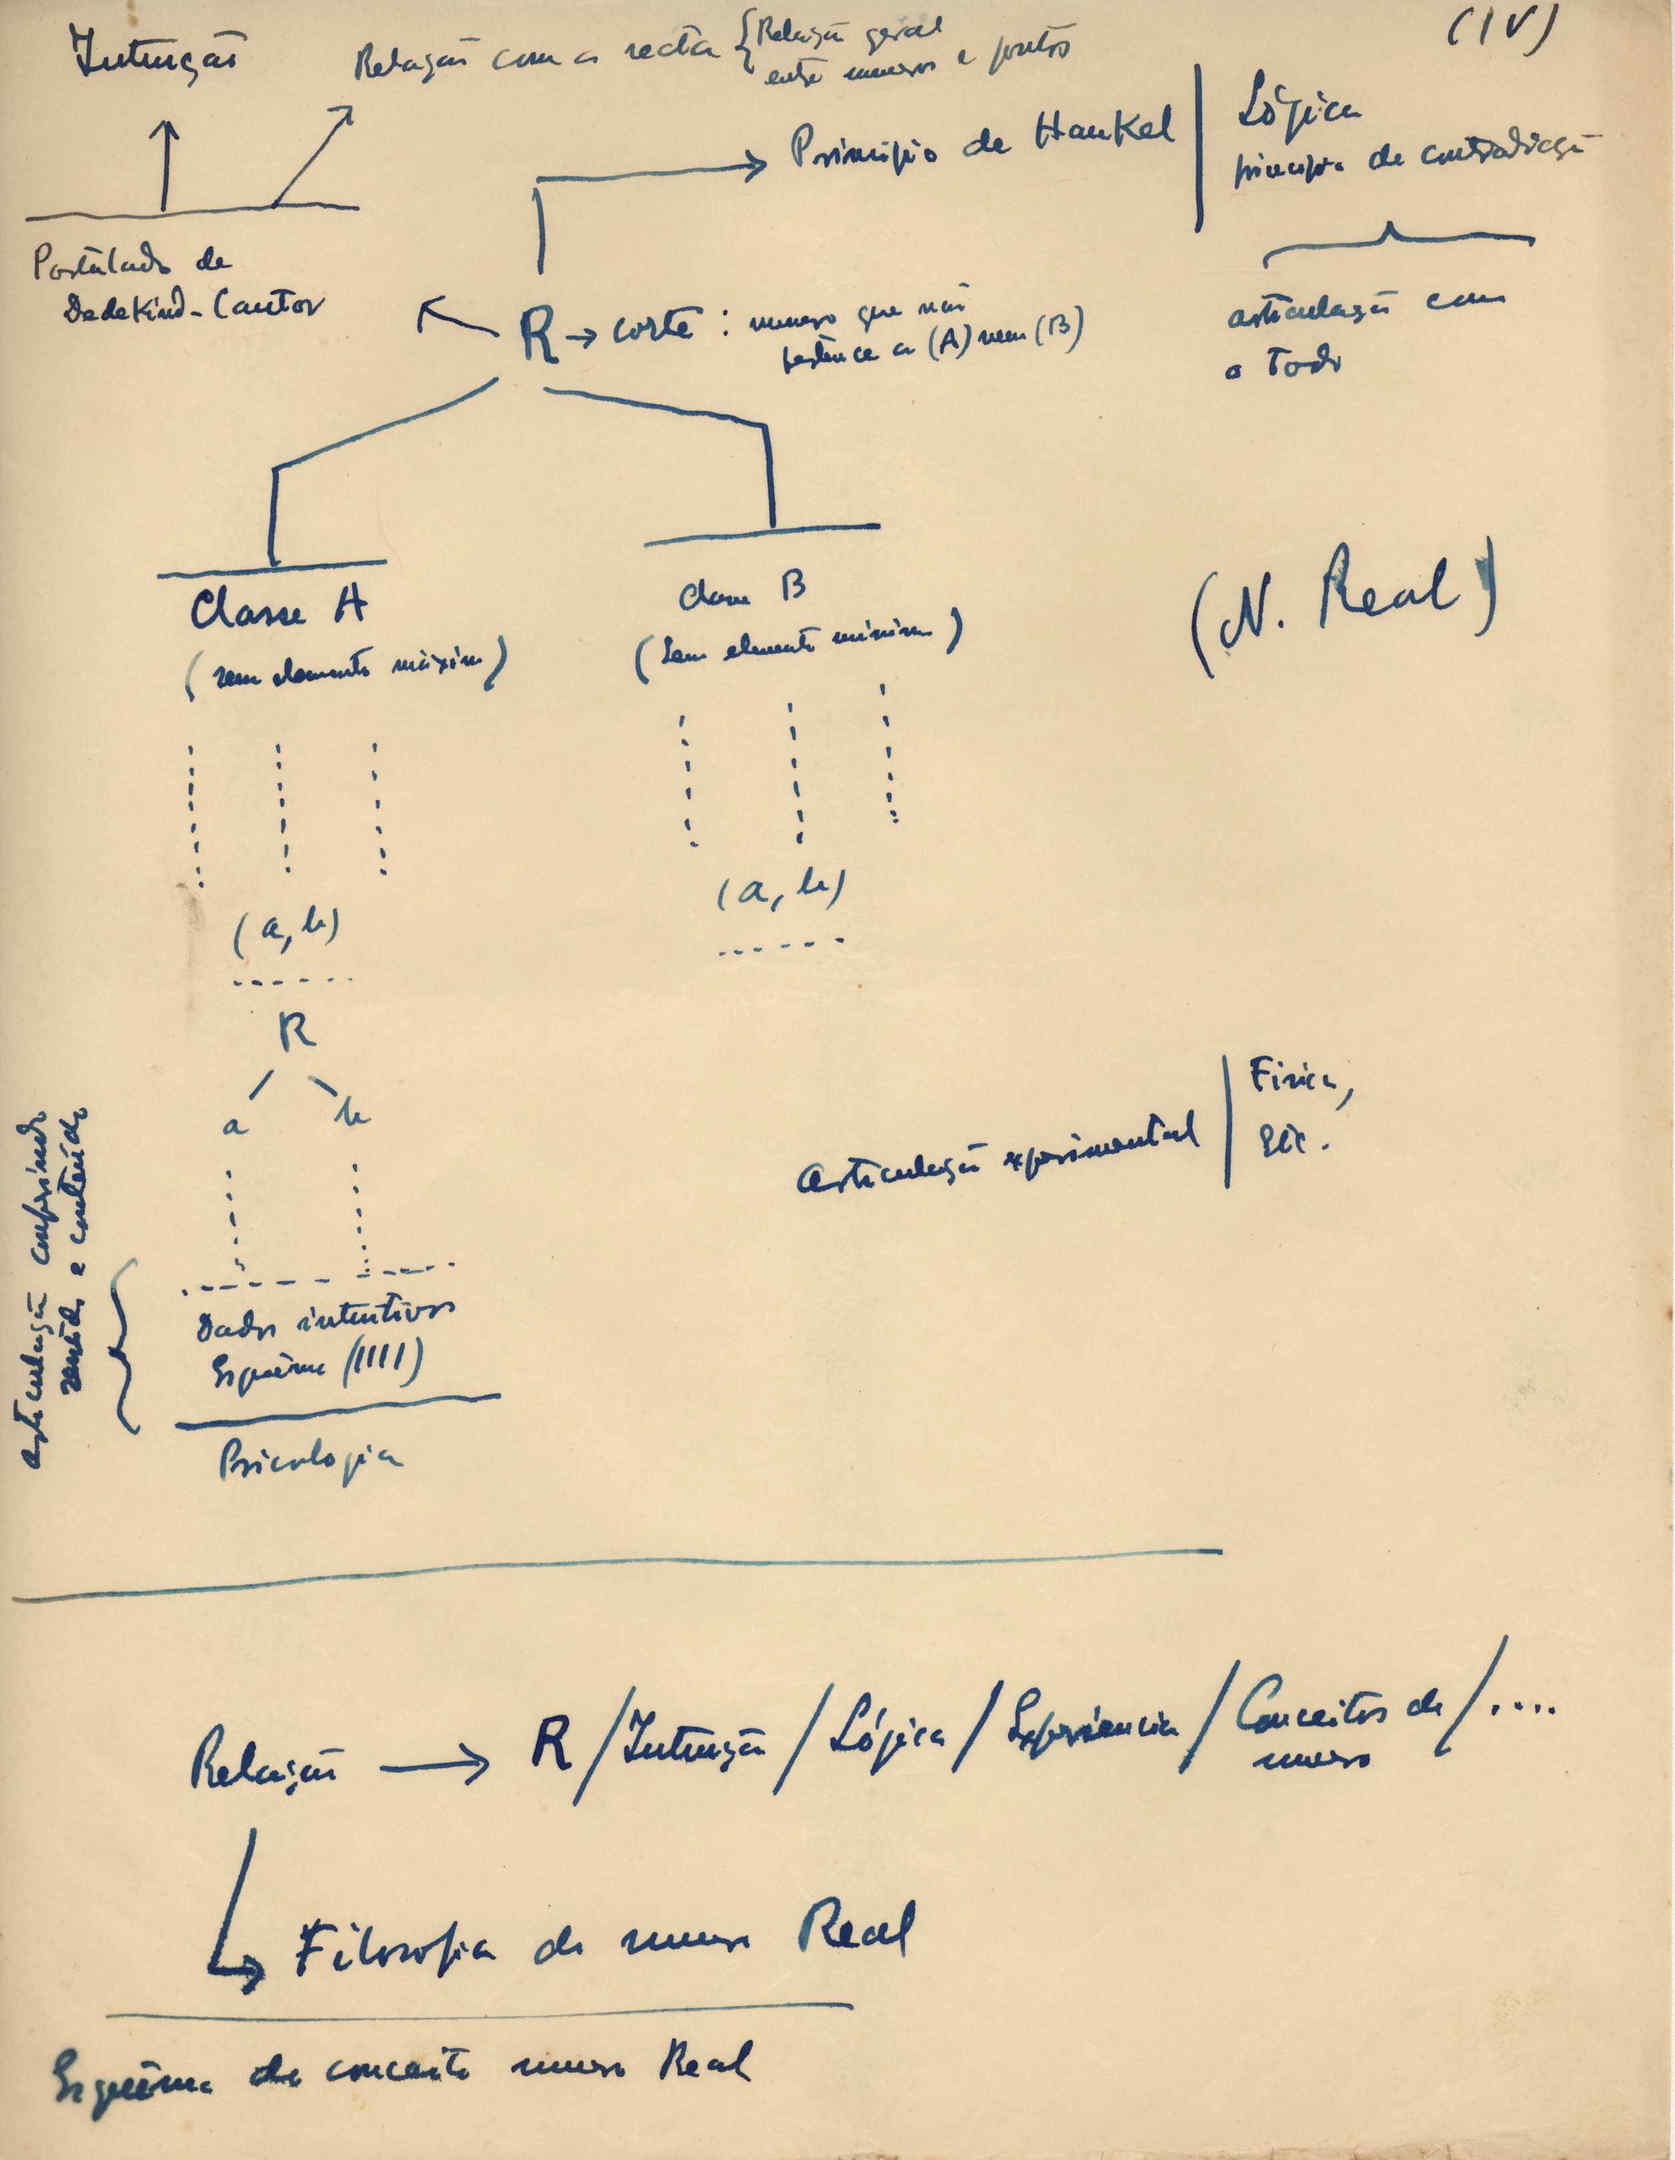 (IV)
Intuição
Relação com a recta { Relação geral
entre numeros e pontos
Principio de Hankel
Lógica
principio de contradição
Postulado de
Dedekind-Cantor
R → corte : numero que não
pertence a (A) nem (B)
articulação com
o Todo
Classe A
(sem elemento máximo)
Classe B
(sem elemento minimo)
(N. Real)
(a, b)
(a, b)
R
a b
Articulação experimental
Fisica,
etc.
articulação conferindo
sentido e conteúdo
Dados intuitivos
Esquema (IIII)
Psicologia
Relação → R / Intuição / Lógica / Experiencia / Conceitos de / ....
numero
Filosofia do numero Real
Esquema do conceito numero Real